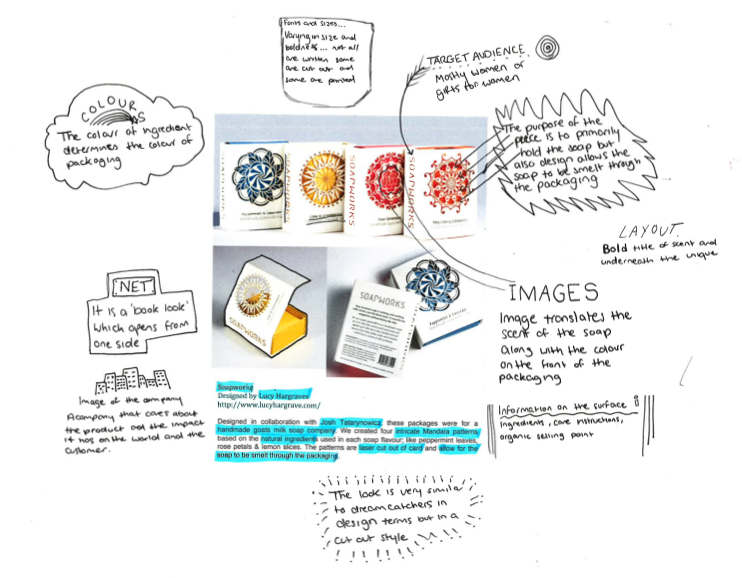 Fonts and sizes...
Varying in size and
boldness... not all
are written some
are cut out and
some are printed
TARGET AUDIENCE
Mostly women or
gifts for women
COLOURS
The colour of ingredient
determines the colour of
packaging
The purpose of the
piece is to primarily
hold the soap but
also design allows the
soap to be smelt through
the packaging
SOAPWORKS
SOAPWORKS
SOAPWORKS
SOAPWORKS
LAYOUT.
Bold title of scent and
underneath the unique
NET
It is a 'book look'
which opens from
one side
SOAPWORKS
SOAPWORKS
Peppermint & Lavender
IMAGES
Image translates the
scent of the soap
along with the colour
on the front of the
packaging
Image of the company
A company that cares about
the product and the impact
it has on the world and the
customer.
Soapworks
Designed by Lucy Hargraves
http://www.lucyhargrave.com/
Designed in collaboration with Josh Tatarynowicz, these packages were for a
handmade goats milk soap company. We created four intricate Mandala patterns
based on the natural ingredients used in each soap flavour; like peppermint leaves,
rose petals & lemon slices. The patterns are laser cut out of card and allow for the
soap to be smelt through the packaging.
Information on the surface
ingredients, care instructions,
organic selling point
The look is very similar
to dreamcatchers in
design terms but in a
cut out style